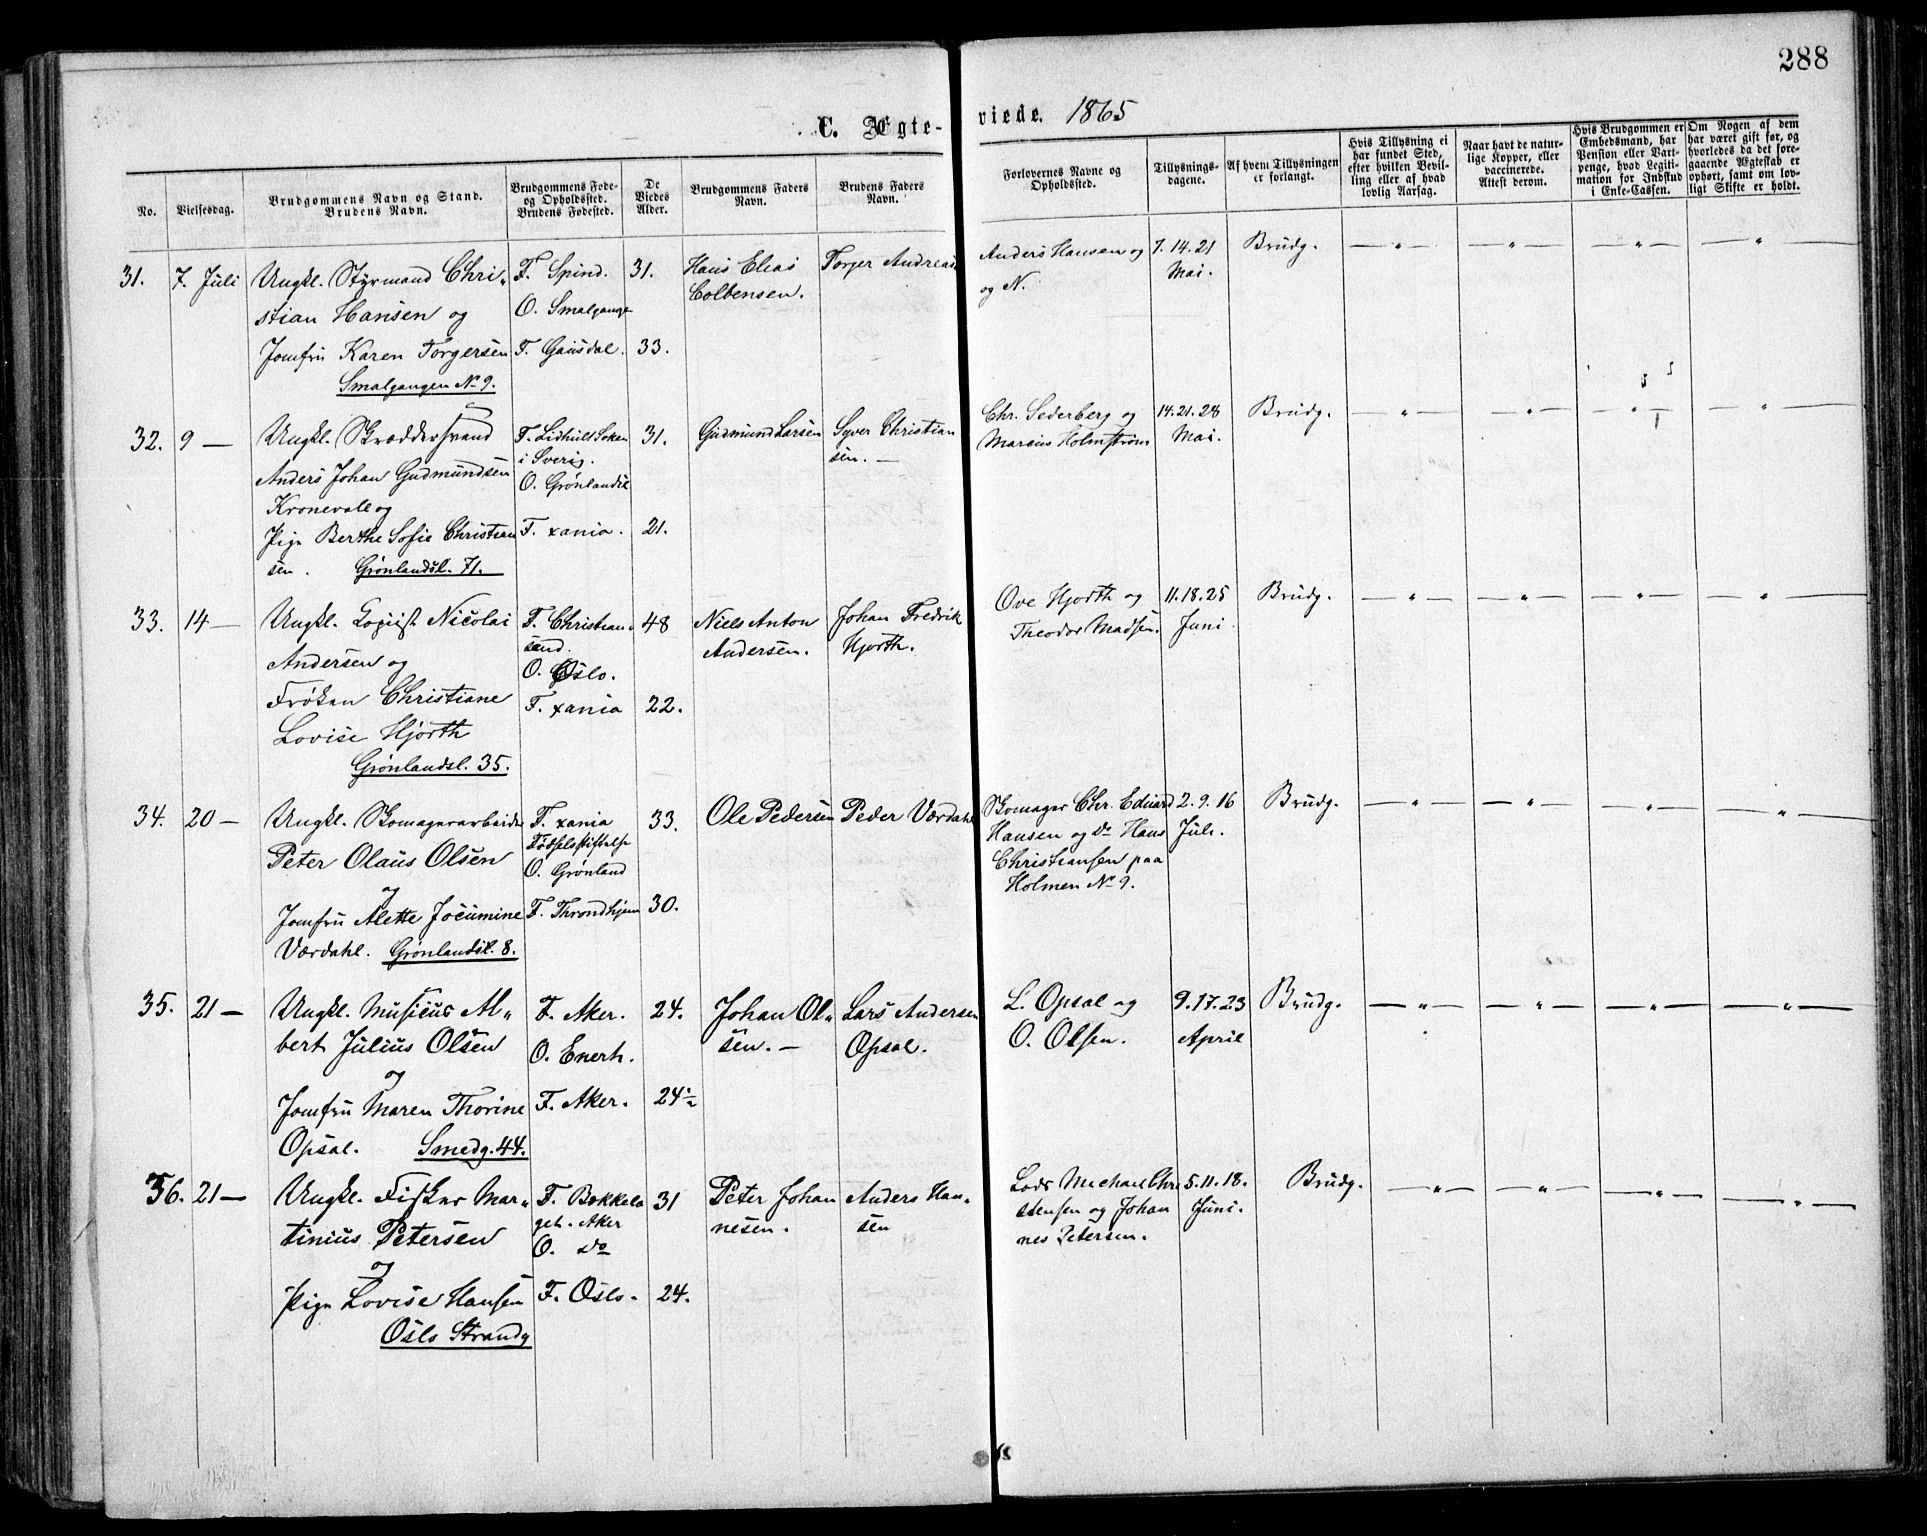 288
C. Ægte-
viede. 1865
No.
Vielsesdag.
Brudgommens Navn og Stand.
Brudens Navn.
Brudgommens Føde-
og Opholdssted.
Brudens Fødested.
De
Viedes
Alder.
Brudgommens Faders
Navn.
Brudens Faders
Navn.
Forlovernes Navne og
Opholdssted.
Tillysnings-
dagene.
Af hvem Tillysningen
er forlangt.
Hvis Tillysning ei
har fundet Sted,
efter hvilken Bevil-
ling eller af hvad
lovlig Aarsag.
Naar havt de natur-
lige Kopper, eller
vaccinerede.
Attest derom.
Hvis Brudgommen er
Embedsmand, har
Pension eller Vart-
penge, hvad Legiti-
mation for Indskud
i Enke-Cassen.
Om Nogen af dem
har været gift før, og
hvorledes da det fore-
gaaende Ægteskab er
ophørt, samt om lov-
ligt Skifte er holdt.
31. 7. Juli Ungkl. Styrmand Chri- F. Spind. 31. Hans Elias Torger Andreas Anders Hansen og 7. 14. 21 Brudg. — " — — " — — " — — " —
stian Hansen og O. Smalgange Colbensen. og N. Mai.
Jomfru Karen Torgersen F. Gausdal. 33.
Smalgangen No 9.
32. 9 — Ungkl. Skræddersvend F. Lidhult Soken 31. Gudmund Larsen Syver Christian Chr. Sederberg og 14. 21. 28 Brudg. — " — — " — — " — — " —
Anders Johan Gudmundsen i Sverig. sen. — Marcus Holmstrøm Mai.
Kronevall og O. Grønlandsl
Pige Berthe Sofie Christian F. xania. 21.
sen. Grønlandsl. 71.
33. 14 — Ungkl. Logist Nicolai F. Christian- 48 Niels Anton Johan Fredrik Ove Hjorth og 11. 18. 25 Brudg. — " — — " — — " — — " —
Andersen og sand. Andersen. Hjorth. Theodor Madsen. Juni.
O. Oslo.
Frøken Christiane F. xania 22.
Lovise Hjorth
Grønlandsl. 35.
34. 20 — Ungkl. Skomagerarbeider F. xania 33. Ole Pedersen Peder Værdahl Skomager Chr. Eduard 2. 9. 16 Brudg. — " — — " — — " — — " —
Peter Olaus Olsen Fødselsstiftelse Hansen og Do Hans Juli.
og O. Grønland Christiansen paa
Jomfru Alette Jocumine F. Throndhjem 30. Holmen No 9.
Værdahl. Grønlandsl. 8.
35. 21 — Ungkl. Musicus Al- F. Aker. 24. Johan Ol- Lars Andersen L. Opsal og 9. 17. 23 Brudg. — " — — " — — " — — " —
bert Julius Olsen O. Enerh. sen. — Opsal. O. Olsen. April
og
Jomfru Maren Thorine F. Aker. 24½
Opsal. Smedg. 44.
36. 21 — Ungkl. Fisker Mar- F. Bækkela 31 Peter Johan Anders Han- Lods Michael Chri 5. 11. 18. Brudg. — " — — " — — " — — " —
tinius Petersen get. Aker nesen. sen stensen og Johan Juni.
og O. Do nes Petersen.
Pige Lovise Hansen F. Oslo. 24.
Oslo Strandg